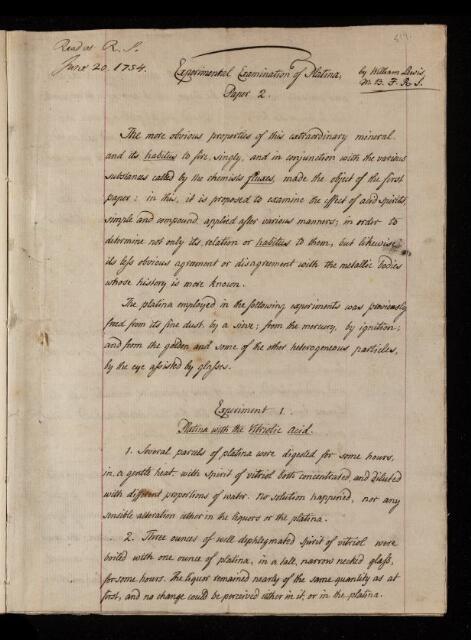 Read at R. S.
June 20. 1754.
Experimental Examination of Platina,
by William Lewis,
M. B. F. R. S.
Paper 2.
The more obvious properties of this extraordinary mineral
and its habitus to fire, singly, and in conjunction with the various
substances called by the chemists fluxes, made the object of the first
paper: in this, it is proposed to examine the effect of acid spirits,
simple and compound, applied after various manners; in order to
determine not only its relation or habitus to them, but likewise
its less obvious agreement or disagreement with the metallic bodies
whose history is more known.
The platina employed in the following experiments was previously
freed from its fine dust by a sieve; from the mercury, by ignition;
and from the golden and some of the other heterogeneous particles,
by the eye assisted by glasses.
Experiment 1.
Platina with the Vitriolic Acid.
1. Several parcels of platina were digested for some hours,
in a gentle heat, with spirit of vitriol both concentrated and diluted
with different proportions of water. No solution happened, nor any
sensible alteration either in the liquors or the platina.
2. Three ounces of well dephlegmated spirit of vitriol were
boiled with one ounce of platina, in a tall, narrow necked glass,
for some hours. The liquor remained nearly of the same quantity as at
first, and no change could be perceived either in it, or in the platina.